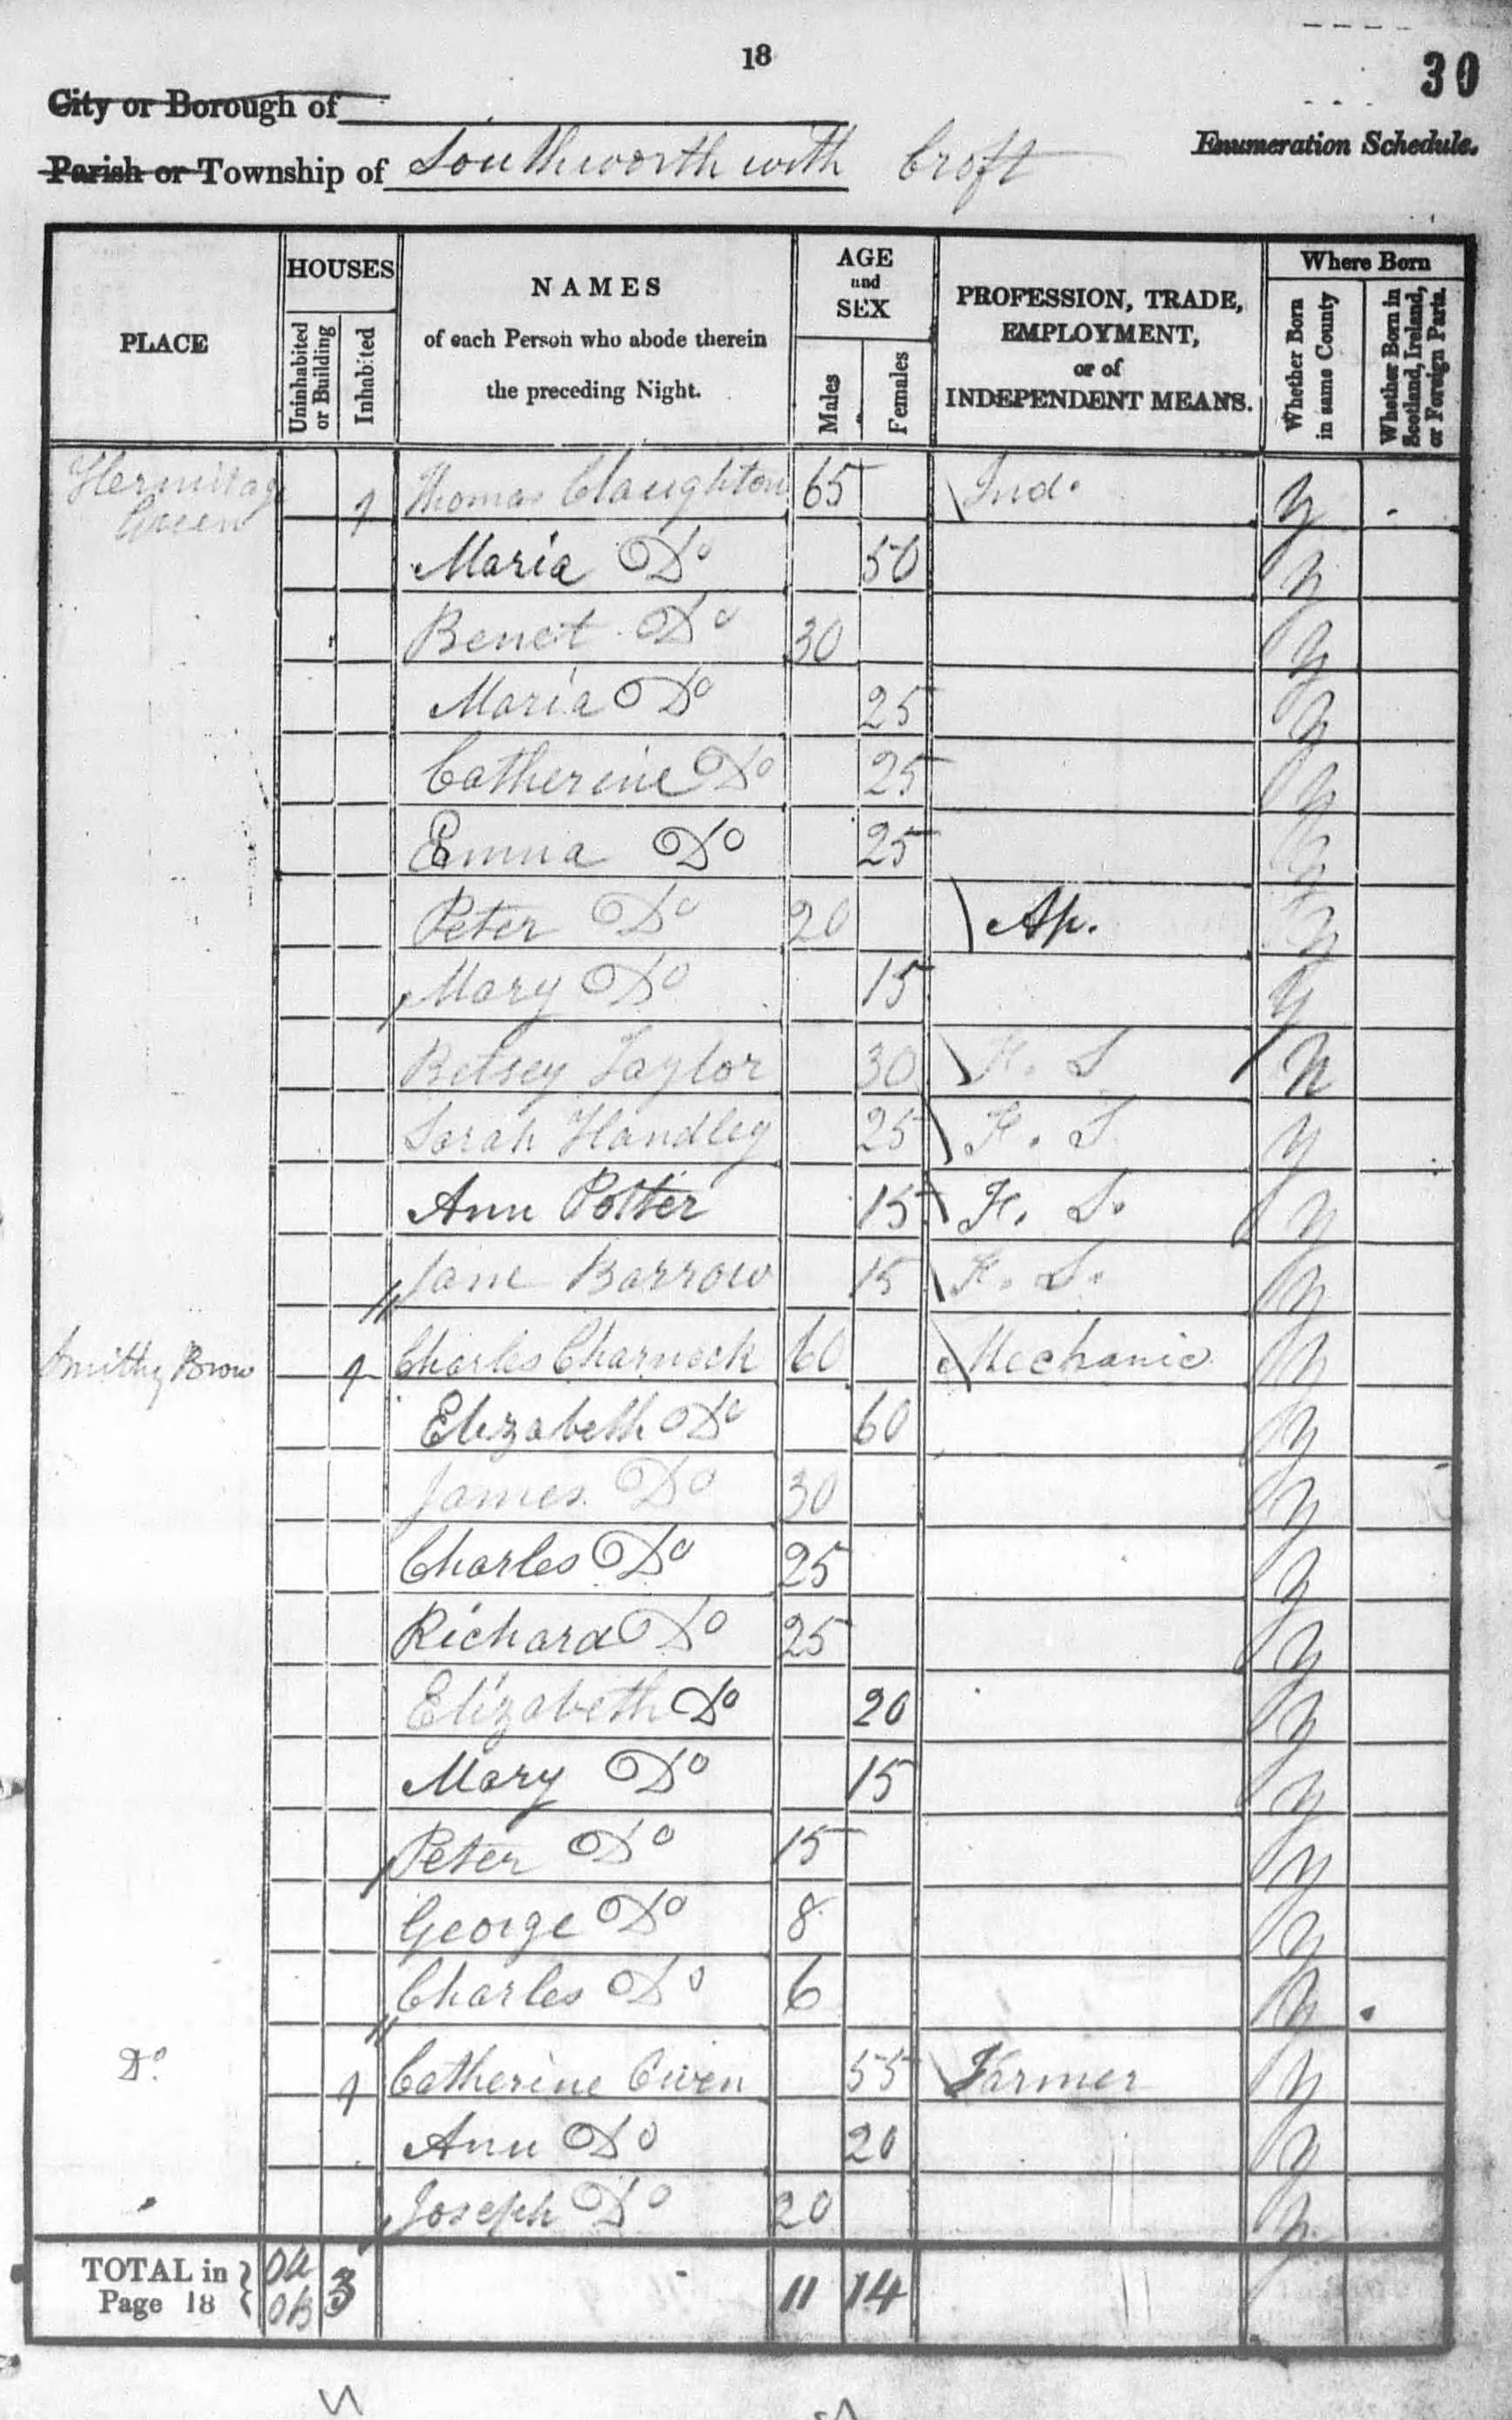 18
30
City or Borough of
Enumeration Schedule.
Parish or Township of Southworth with Croft
PLACE
HOUSES
Uninhabited or Building
Inhabited
NAMES
of each Person who abode therein
the preceding Night.
AGE
and
SEX
Males
Females
PROFESSION, TRADE,
EMPLOYMENT,
or of
INDEPENDENT MEANS.
Where Born
Whether Born in same County
Whether Born in Scotland, Ireland, or Foreign Parts.
Hermitage Green 1 Thomas Claughton 65 Ind. Y
Maria Do 50 Y
Benet Do 30 Y
Maria Do 25 Y
Catherine Do 25 Y
Emma Do 25 Y
Peter Do 20 Ap. Y
Mary Do 15 Y
Betsey Taylor 30 F. S N
Sarah Handley 25 F. S Y
Ann Potter 15 F. S. Y
Jane Barrow 15 F. S. Y
Smithy Brow 1 Charles Charnock 60 Mechanic Y
Elizabeth Do 60 Y
James Do 30 Y
Charles Do 25 Y
Richard Do 25 Y
Elizabeth Do 20 Y
Mary Do 15 Y
Peter Do 15 Y
George Do 8 Y
Charles Do 6 Y
Do 1 Catherine Owen 55 Farmer Y
Ann Do 20 Y
Joseph Do 20 Y
TOTAL in Page 18 0U 0B 3 11 14